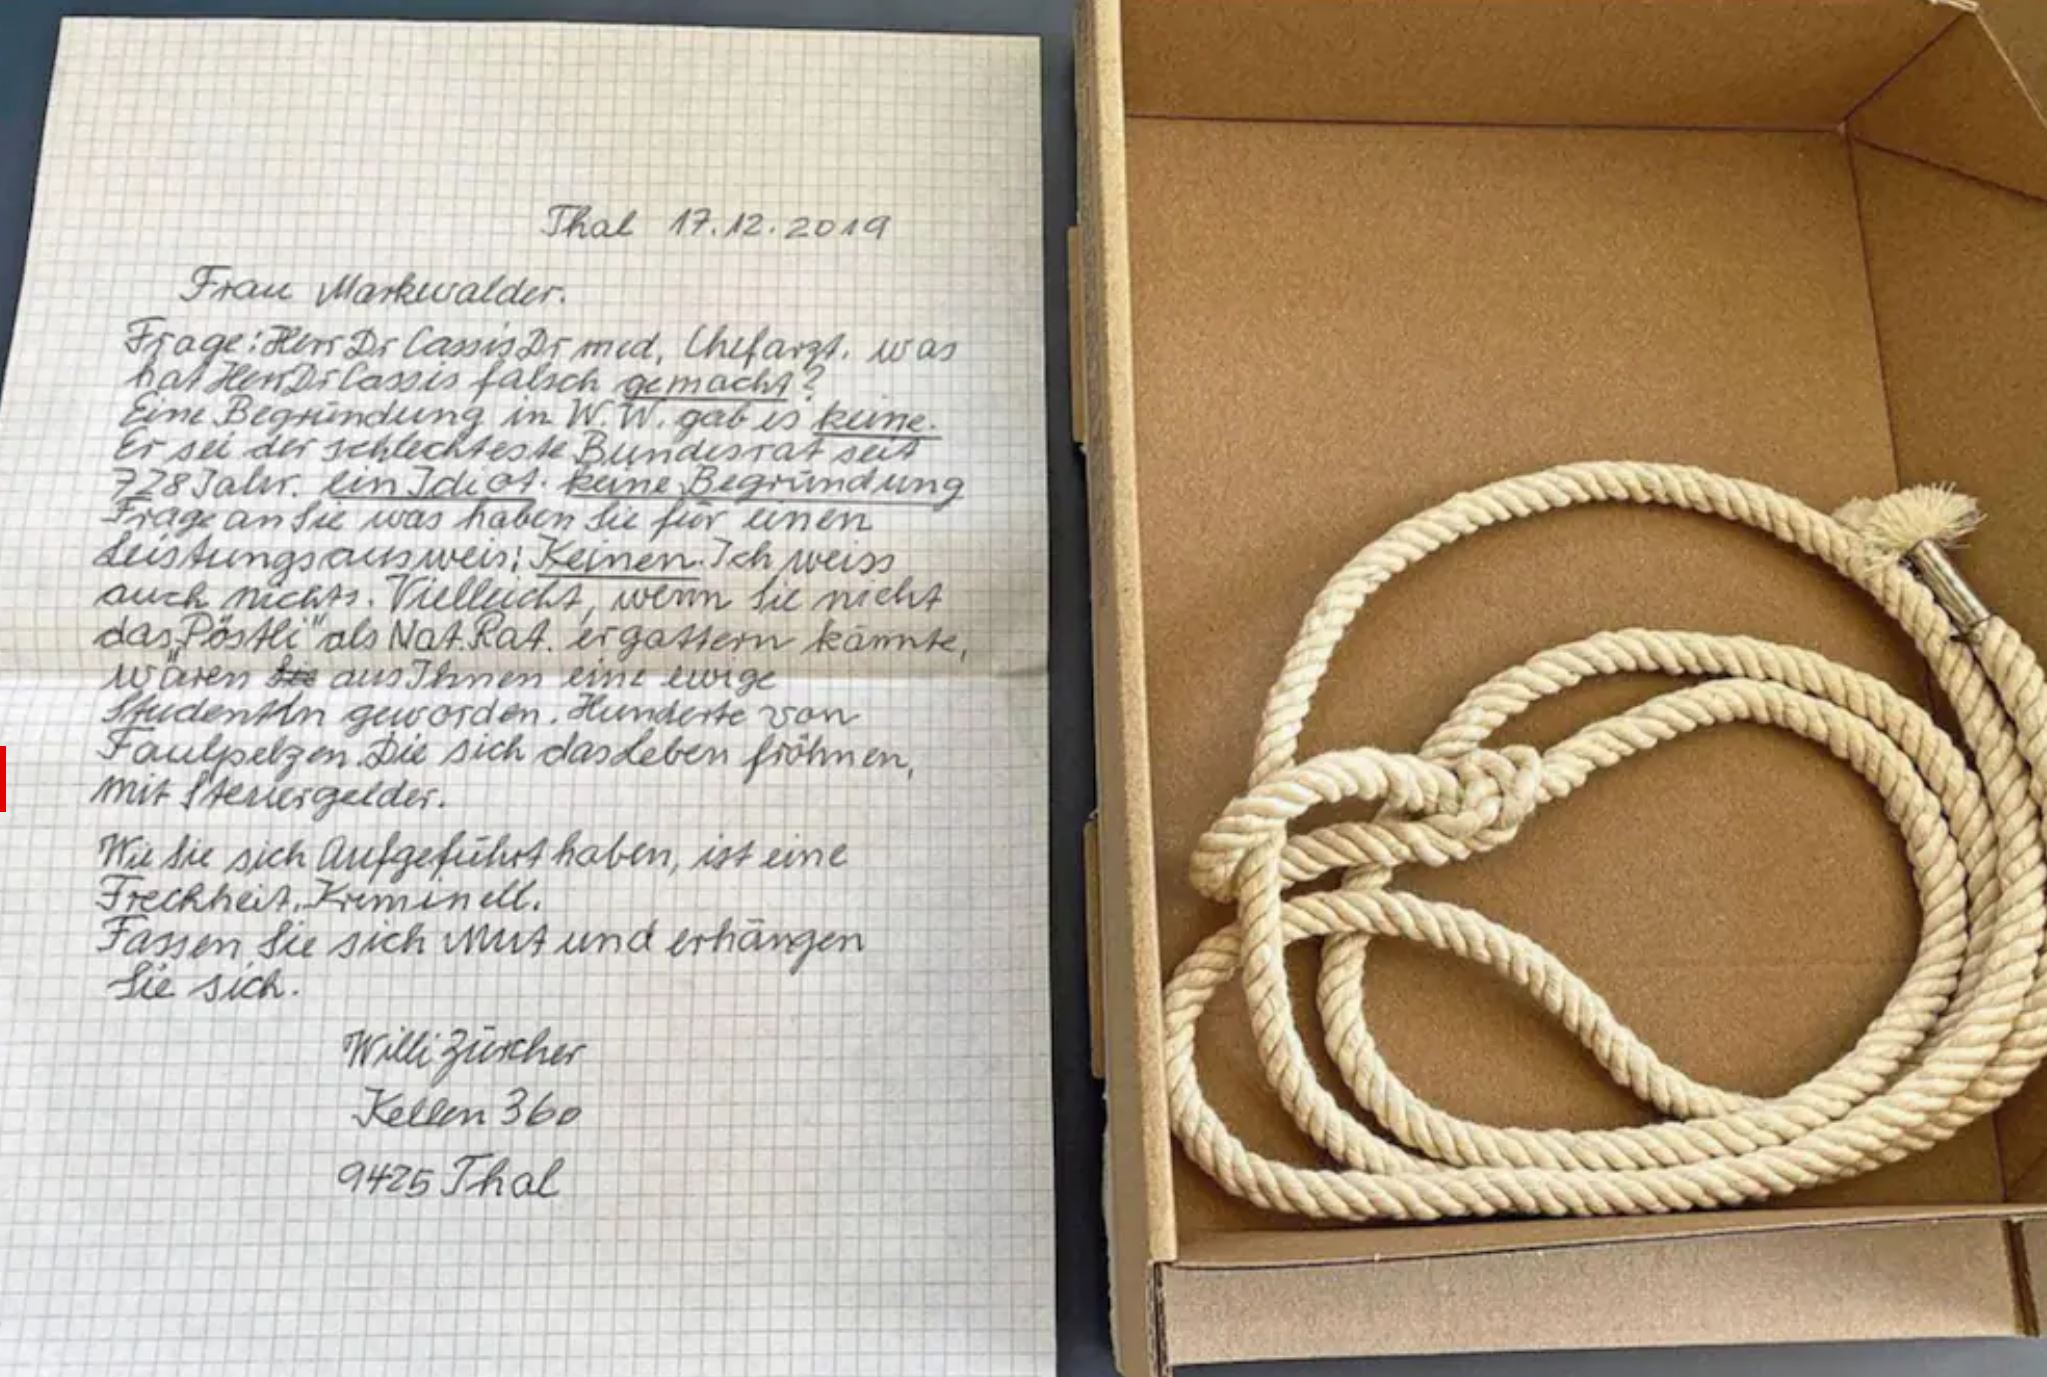 Thal 17.12.2019
Frau Markwalder.
Frage: Herr Dr Cassis Dr med, Chefarzt. was
hat Herr Dr Cassis falsch gemacht?
Eine Begründung in W.W. gab es keine.
Er sei der schlechteste Bundesrat seit
728 Jahr. ein Idiot. keine Begründung
Frage an Sie was haben Sie für einen
Leistungsausweis: Keinen. Ich weiss
auch nichts. Vielleicht, wenn Sie nicht
das „Pöstli" als Nat. Rat. ergattern könnte,
wären aus Ihnen eine ewige
StudentIn geworden. Hunderte von
Faulpelzen. Die sich das Leben fröhnen,
mit Steuergelder.
Wie Sie sich Aufgeführt haben, ist eine
Frechheit. Kriminell.
Fassen Sie sich Mut und erhängen
Sie sich.
Willi Zürcher
Kellen 360
9425 Thal